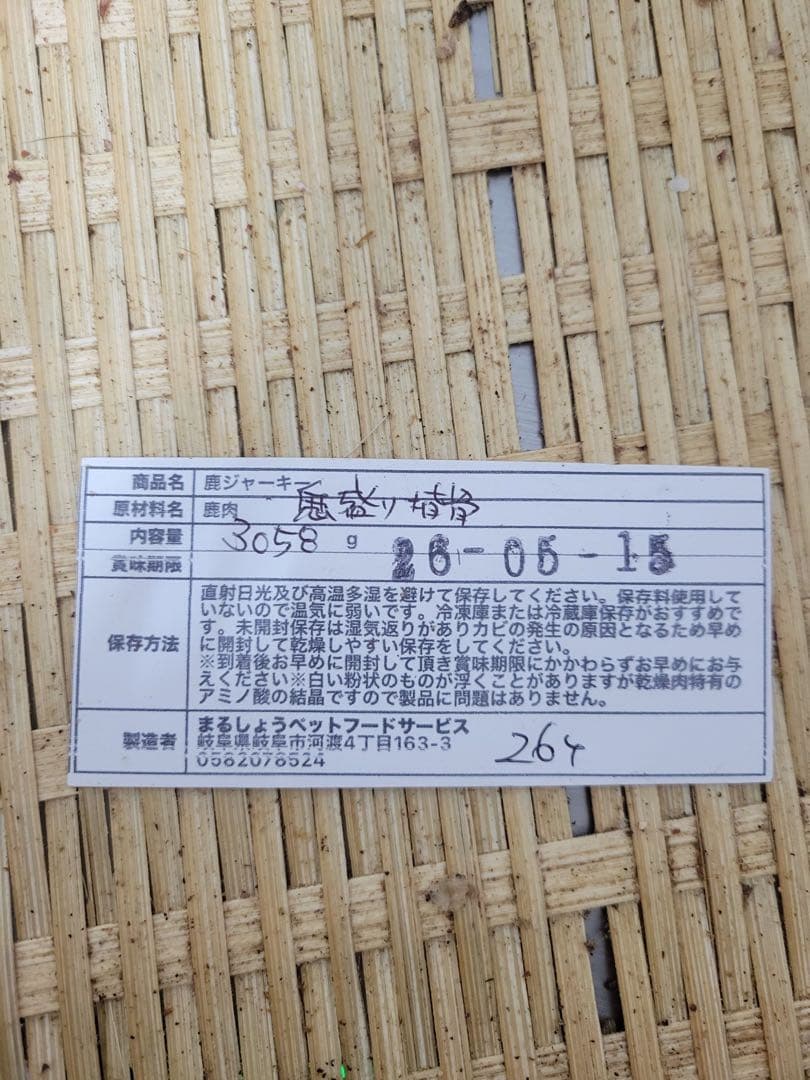 商品名 鹿ジャーキー
原材料名 鹿肉
盛り
内容量 3058 g
賞味期限 26-05-15
保存方法
直射日光及び高温多湿を避けて保存してください。保存料使用して
いないので温気に弱いです。冷凍庫または冷蔵庫保存がおすすめで
す。未開封保存は湿気返りがありカビの発生の原因となるため早め
に開封して乾燥しやすい保存をしてください。
※到着後お早めに開封して頂き賞味期限にかかわらずお早めにお与
えください※白い粉状のものが浮くことがありますが乾燥肉特有の
アミノ酸の結晶ですので製品に問題はありません。
製造者
まるしょうペットフードサービス
岐阜県岐阜市河渡4丁目163-3
0582078524